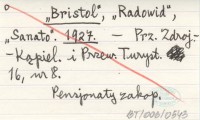 „Bristol", „Radowid",
„Sanato". 1927. — Prz. Zdroj.-
-Kąpiel. i Przew. Turyst.
16, nr 8.
Pensjonaty zakop.
BT/006/0543